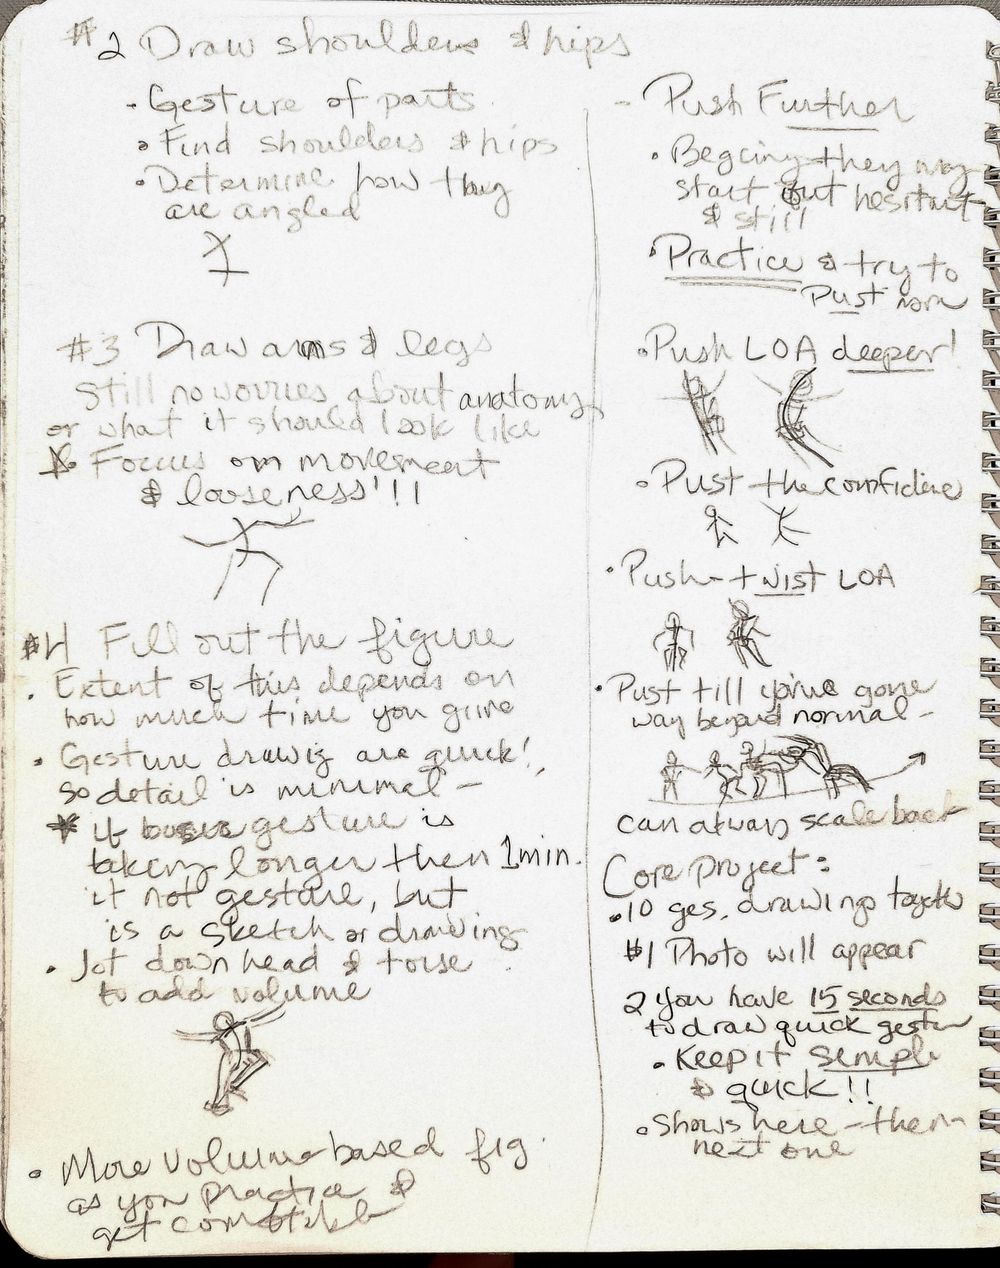 #2 Draw shoulders & hips
- Gesture of parts
• Find shoulders & hips
• Determine how they
are angled
#3 Draw arms & legs
still no worries about anatomy
or what it should look like
Focus on movement
& looseness!!!
#4 Fill out the figure
• Extent of this depends on
how much time you give
• Gesture drawig are quick!,
so detail is minimal -
* if gesture is
taking longer then 1min.
it not gesture, but
is a sketch or drawing
• Jot down head & torse
to add volume
• More volume-based fig.
as you practice &
get comftable
- Push Further
• Begging they may
start out hesitant
& still
• Practice & try to
Pust more
• Push LOA deeper!
• Pust the confidene
• Push - twist LOA
• Pust till you've gone
way beyond normal -
can always scale back
Core project:
• 10 ges. drawings togeth
#1 Photo will appear
2 you have 15 seconds
to draw quick gestur
• Keep it simple
& quick!!
• Shows here - then
next one